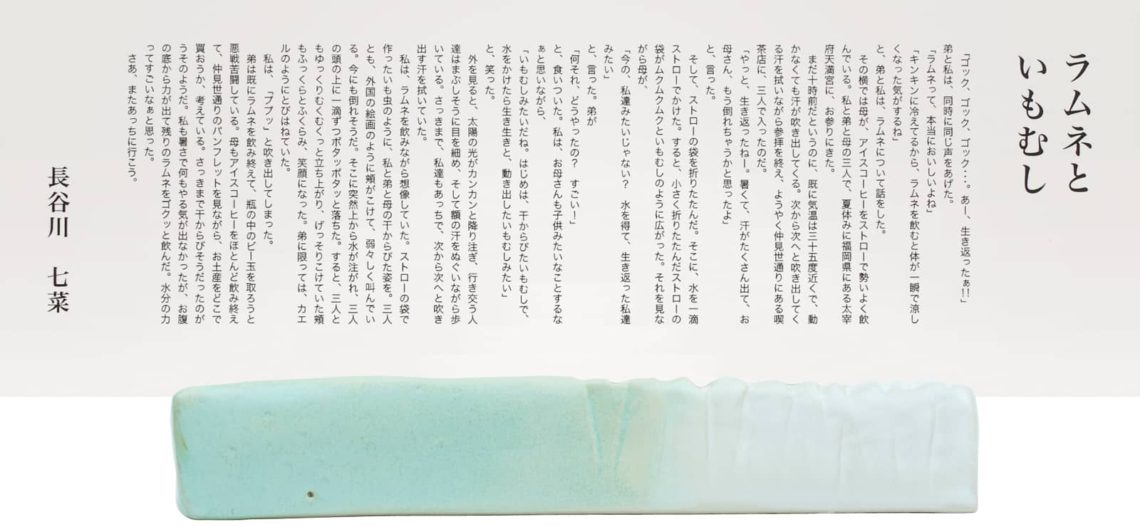 ラムネと
いもむし
「ゴック、ゴック、ゴック・・・。あー、生き返ったぁ!!」
弟と私は、同時に同じ声をあげた。
「ラムネって、本当においしいよね」
「キンキンに冷えてるから、ラムネを飲むと体が一瞬で涼し
くなった気がするね」
と、弟と私は、ラムネについて話をした。
その横では母が、アイスコーヒーをストローで勢いよく飲
んでいる。私と弟と母の三人で、夏休みに福岡県にある太宰
府天満宮に、お参りにきた。
まだ十時前だというのに、既に気温は三十五度近くで、動
かなくても汗が吹き出してくる。次から次へと吹き出してく
る汗を拭いながら参拝を終え、ようやく仲見世通りにある喫
茶店に、三人で入ったのだ。
「やっと、生き返ったねー。暑くて、汗がたくさん出て、お
母さん、もう倒れちゃうかと思ったよ」
と、言った。
そして、ストローの袋を折りたたんだ。そこに、水を一滴
ストローでかけた。すると、小さく折りたたんだストローの
袋がムクムクムクといもむしのように広がった。それを見な
がら母が、
「今の、私達みたいじゃない? 水を得て、生き返った私達
みたい」
と、言った。弟が
「何それ、どうやったの? すごい!」
と、食いついた。私は、お母さんも子供みたいなことするな
ぁと思いながら、
「いもむしみたいだね。はじめは、干からびたいもむしで、
水をかけたら生き生きと、動き出したいもむしみたい」
と、笑った。
外を見ると、太陽の光がカンカンと降り注ぎ、行き交う人
達はまぶしそうに目を細め、そして額の汗をぬぐいながら歩
いている。さっきまで、私達もあっちで、次から次へと吹き
出す汗を拭いていた。
私は、ラムネを飲みながら想像していた。ストローの袋で
作ったいもむしのように、私と弟と母の干からびた姿を。三人
とも、外国の絵画のように頬がこけて、弱々しく叫んでい
る。今にも倒れそうだ。そこに突然上から水が注がれ、三人
の頭の上に一滴ずつポタッポタッと落ちた。すると、三人と
もゆっくりむくむくっと立ち上がり、げっそりこけていた頬
もふっくらとふくらみ、笑顔になった。弟に限っては、カエ
ルのようにとびはねていた。
私は、「ププッ」と吹き出してしまった。
弟は既にラムネを飲み終えて、瓶の中のビー玉を取ろうと
悪戦苦闘している。母もアイスコーヒーをほとんど飲み終え
て、仲見世通りのパンフレットを見ながら、お土産をどこで
買おうか、考えている。さっきまで干からびそうだったのが
うそのようだ。私も暑さで何もやる気が出なかったが、お腹
の底から力が出て残りのラムネをゴクッと飲んだ。水分の力
ってすごいなぁと思った。
さあ、またあっちに行こう。
長谷川 七菜